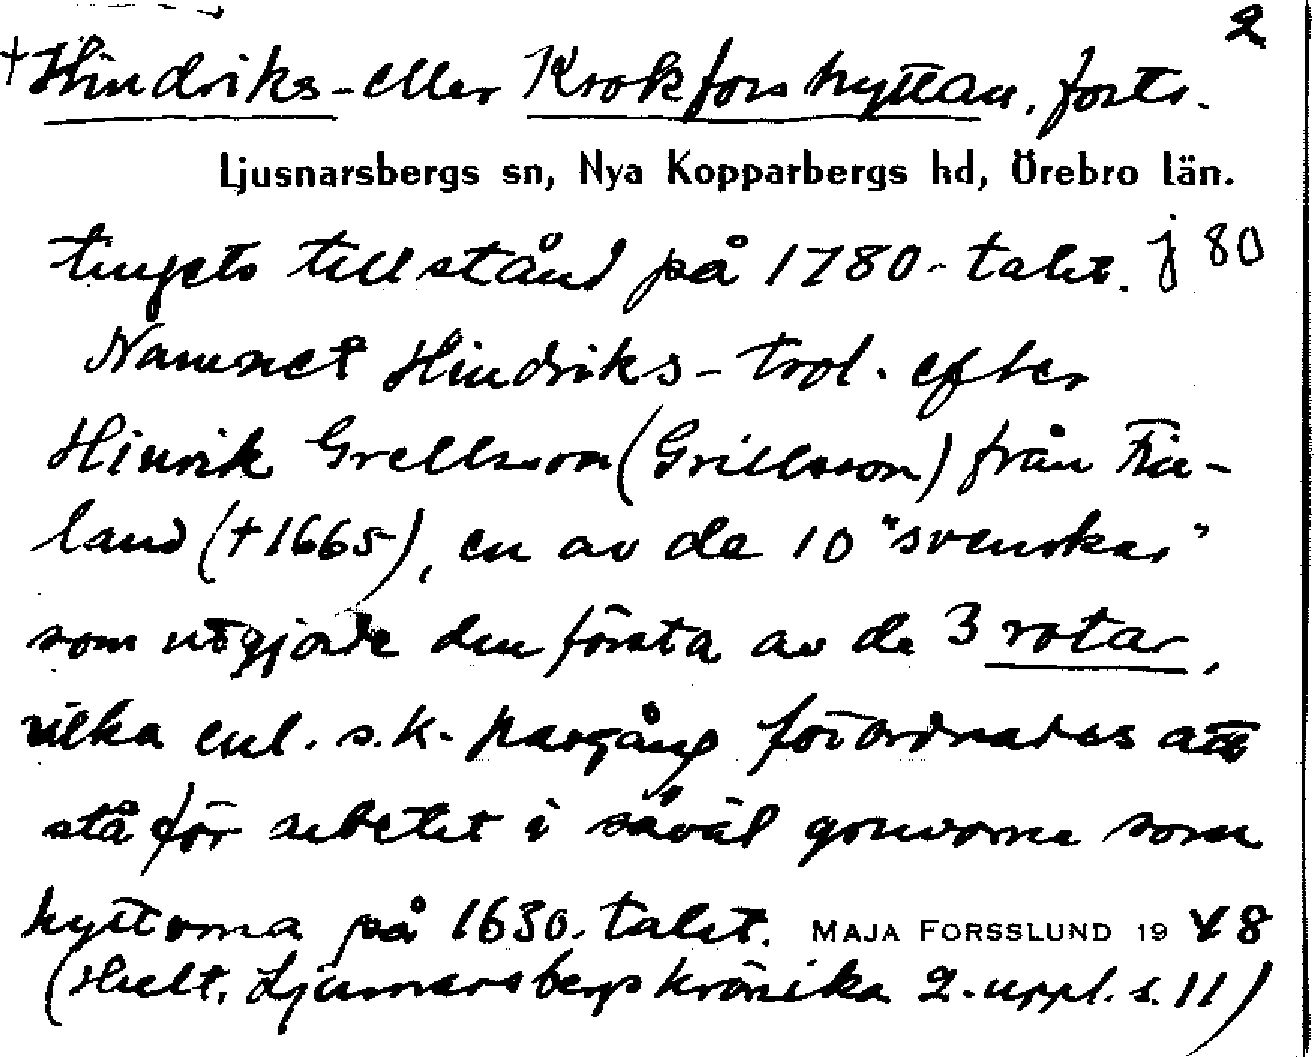 2
†Hindriks- eller Krokforshyttan, forts.
Ljusnarsbergs sn, Nya Kopparbergs hd, Örebro län.
tingets tillstånd på 1780-talet. j 80
Namnet Hindriks- trol. efter
Hinrik Grellsson (Grillsson) från Fin-
land (†1665), en av de 10 "svenskar"
som utgjorde den första av de 3 rotar,
vilka enl. s.k. hargång förordnades att
stå för arbetet i såväl gruvorna som
hyttorna på 1630-talet. MAJA FORSSLUND 1948
(Hult, Ljusnarsbergs krönika 2. uppl. s. 11)